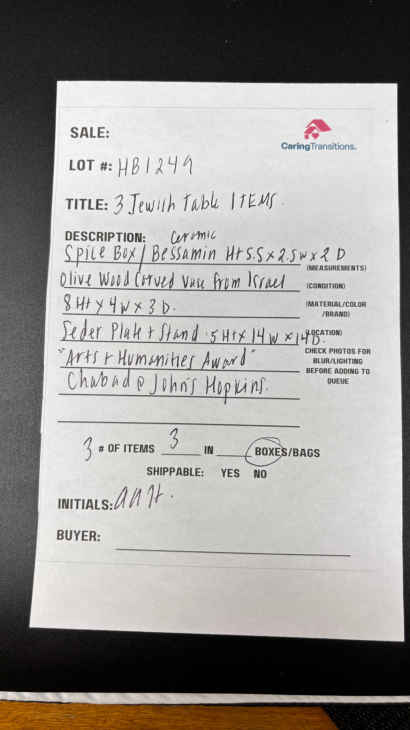 SALE:
CaringTransitions.
LOT #: HB1249
TITLE: 3 Jewish Table ITEMS.
DESCRIPTION: Ceramic
Spice Box / Bessamin Ht 5.5 x 2.5w x 2 D
(MEASUREMENTS)
Olive Wood Carved Vase from Israel
(CONDITION)
8 Ht x 4 w x 3 D.
(MATERIAL/COLOR
/BRAND)
Seder Plate + Stand .5 Ht x 14 w x 14D.
LOCATION)
"Arts + Humanities Award"
CHECK PHOTOS FOR
BLUR/LIGHTING
BEFORE ADDING TO
QUEUE
Chabad @ John's Hopkins.
3 # OF ITEMS 3 IN BOXES/BAGS
SHIPPABLE: YES NO
INITIALS:
BUYER: